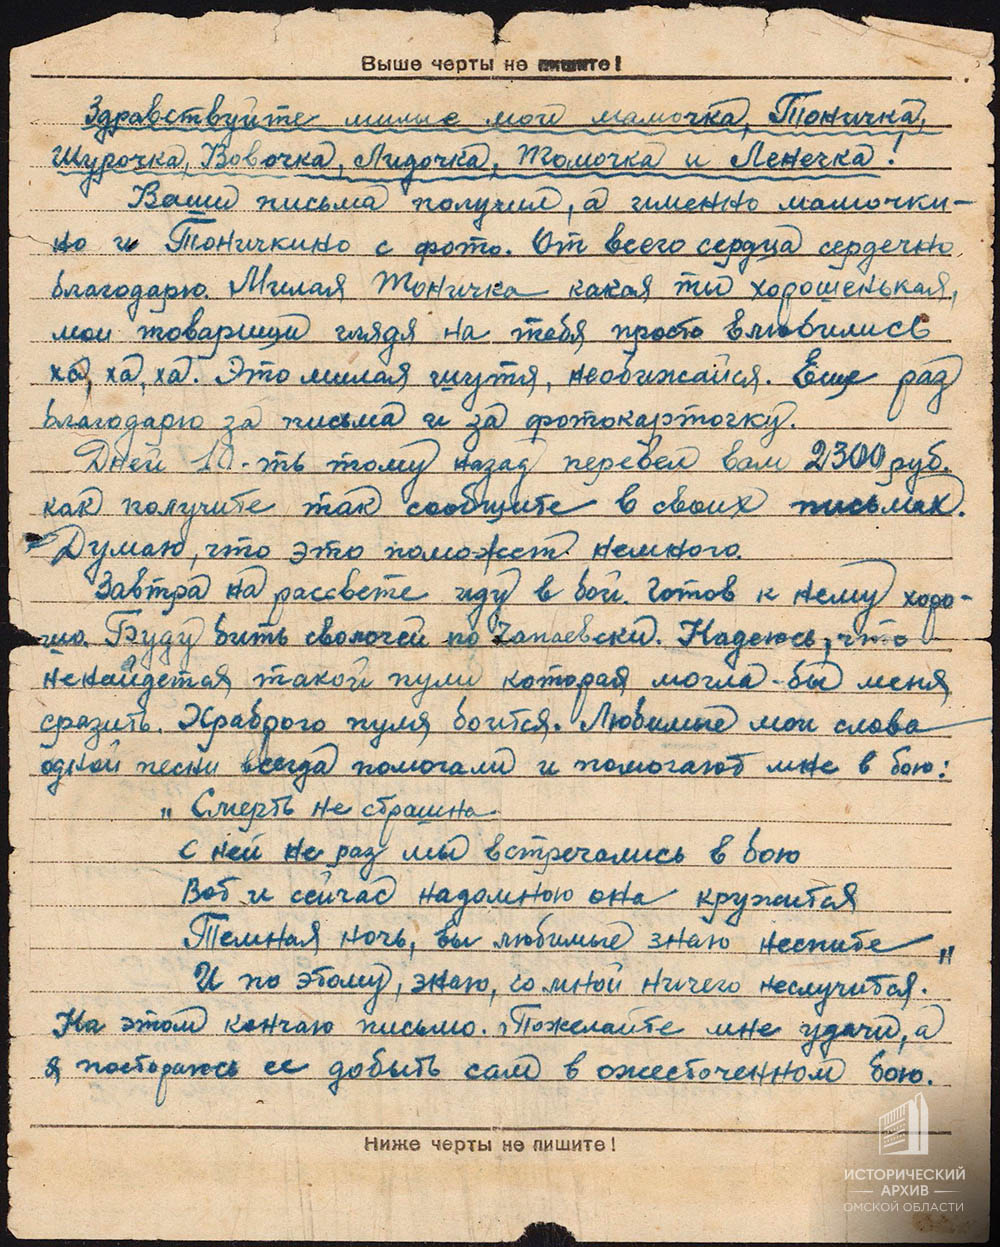 Выше черты не пишите!
Здравствуйте милые мои мамочка, Тоничка,
Шурочка, Вовочка, Лидочка, Томочка и Ленечка!
Ваши письма получил, а именно мамочки-
но и Тоничкино с фото. От всего сердца сердечно
благодарю. Милая Тоничка какая ты хорошенькая,
мои товарищи глядя на тебя просто влюбились
ха, ха, ха. Это милая шутя, необижайся. Еще раз
благодарю за письма и за фотокарточку.
Дней 10-ть тому назад перевел вам 2300 руб.
как получите так сообщите в своих письмах.
Думаю, что это поможет немного.
Завтра на рассвете иду в бой. Готов к нему хоро-
шо. Буду бить сволочей по Чапаевски. Надеюсь, что
ненайдется такой пули которая могла-бы меня
сразить. Храброго пуля боится. Любимые мои слова
одной песни всегда помогали и помогают мне в бою:
„Смерть не страшна
с ней не раз мы встречались в бою
Вот и сейчас надомною она кружится
Темная ночь, вы любимые знаю неспите"
И по этому, знаю, со мной ничего неслучится.
На этом кончаю письмо. Пожелайте мне удачи, а
я постораюсь ее добыть сам в ожесточенном бою.
Ниже черты не пишите!
ИСТОРИЧЕСКИЙ
АРХИВ
ОМСКОЙ ОБЛАСТИ